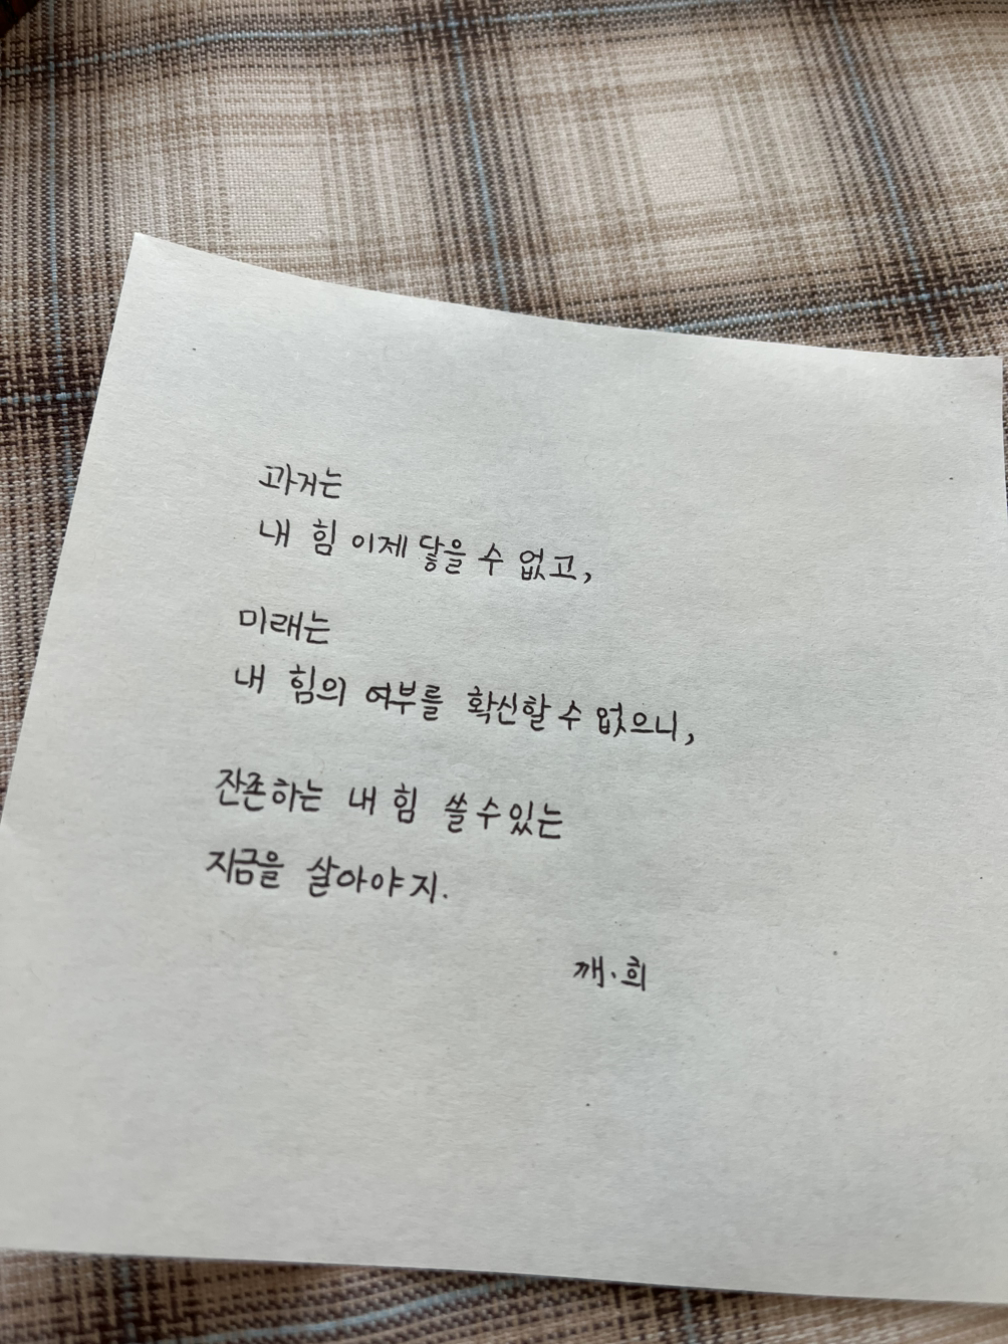 과거는
내 힘 이제 닿을 수 없고,
미래는
내 힘의 여부를 확신할 수 없으니,
잔존하는 내 힘 쓸 수 있는
지금을 살아야지.
깨.희